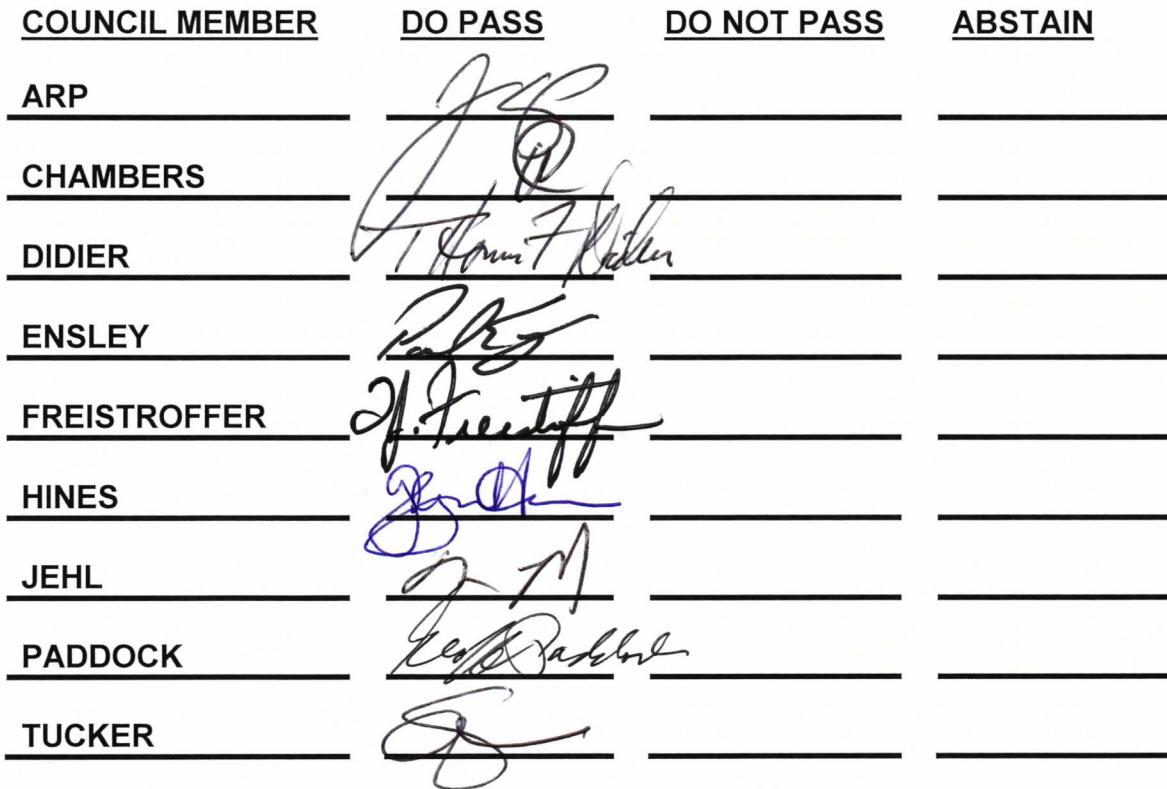 COUNCIL MEMBER DO PASS DO NOT PASS ABSTAIN
ARP
CHAMBERS
DIDIER Thomas F Didier
ENSLEY Paul
FREISTROFFER
HINES
JEHL
PADDOCK Geoff Paddock
TUCKER